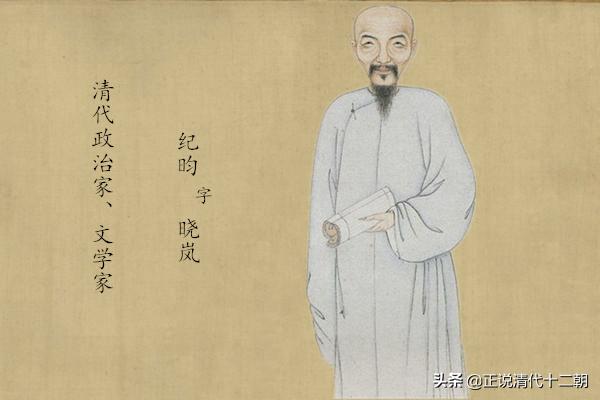 纪昀
字
晓岚
清代政治家、文学家
头条 @正说清代十二朝